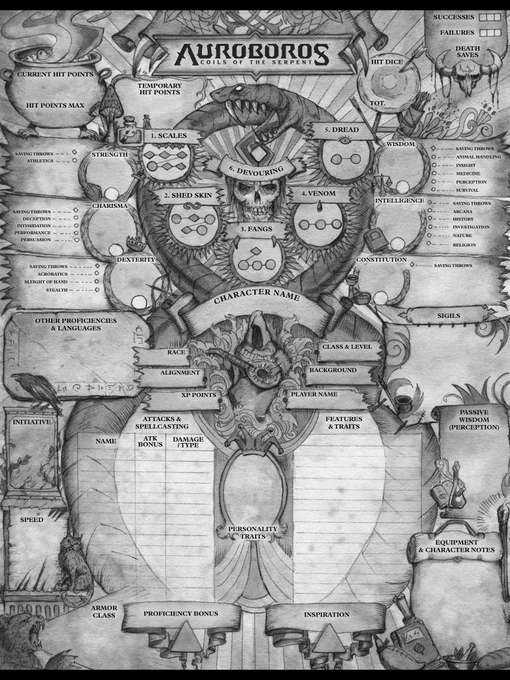 AUROBOROS
COILS OF THE SERPENT
SUCCESSES
FAILURES
DEATH
SAVES
HIT DICE
TOT.
CURRENT HIT POINTS
HIT POINTS MAX
TEMPORARY
HIT POINTS
1. SCALES
5. DREAD
6. DEVOURING
2. SHED SKIN
4. VENOM
3. FANGS
STRENGTH
SAVING THROWS
ATHLETICS
CHARISMA
SAVING THROWS
DECEPTION
INTIMIDATION
PERFORMANCE
PERSUASION
DEXTERITY
SAVING THROWS
ACROBATICS
SLEIGHT OF HAND
STEALTH
WISDOM
SAVING THROWS
ANIMAL HANDLING
INSIGHT
MEDICINE
PERCEPTION
SURVIVAL
INTELLIGENCE
SAVING THROWS
ARCANA
HISTORY
INVESTIGATION
NATURE
RELIGION
CONSTITUTION
SAVING THROWS
CHARACTER NAME
OTHER PROFICIENCIES
& LANGUAGES
SIGILS
RACE
ALIGNMENT
XP POINTS
CLASS & LEVEL
BACKGROUND
PLAYER NAME
INITIATIVE
SPEED
ATTACKS &
SPELLCASTING
NAME
ATK
BONUS
DAMAGE
/TYPE
FEATURES
& TRAITS
PERSONALITY
TRAITS
PASSIVE
WISDOM
(PERCEPTION)
EQUIPMENT
& CHARACTER NOTES
ARMOR
CLASS
PROFICIENCY BONUS
INSPIRATION